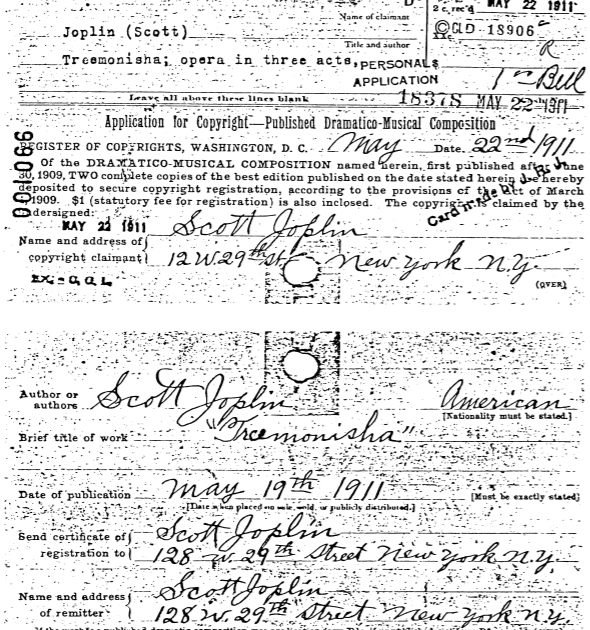 2 c. rec'd MAY 22 1911
Name of claimant
©CLD 18906
Joplin (Scott)
Title and author
R
Treemonisha; opera in three acts, PERSONAL
APPLICATION
Leave all above these lines blank
18378 MAY 22 1911
Application for Copyright—Published Dramatico-Musical Composition
REGISTER OF COPYRIGHTS, WASHINGTON, D. C. May Date. 22nd 1911
Of the DRAMATICO-MUSICAL COMPOSITION named herein, first published after June
30, 1909, TWO complete copies of the best edition published on the date stated herein are hereby
deposited to secure copyright registration, according to the provisions of the Act of March
1909. $1 (statutory fee for registration) is also inclosed. The copyright is claimed by the
undersigned:
Card made by
MAY 22 1911
Scott Joplin
Name and address of
copyright claimant
12 W. 29th St. New York N.Y.
(OVER)
Author or
authors
Scott Joplin American
[Nationality must be stated.]
Brief title of work "Treemonisha"
Date of publication May 19th 1911 [Must be exactly stated]
[Date when placed on sale, sold, or publicly distributed.]
Send certificate of
registration to
Scott Joplin
128 W. 29th Street New York N.Y.
Name and address
of remitter
Scott Joplin
128 W. 29th Street New York N.Y.